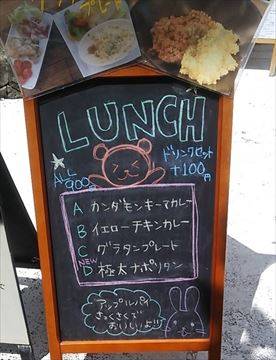 LUNCH
ALL
900円
ドリンクセット
+100円
A カンダモンキーマカレー
B イエローチキンカレー
C グラタンプレート
NEW
D 極太ナポリタン
アップルパイ
さっくさくで
おいしいよ!!